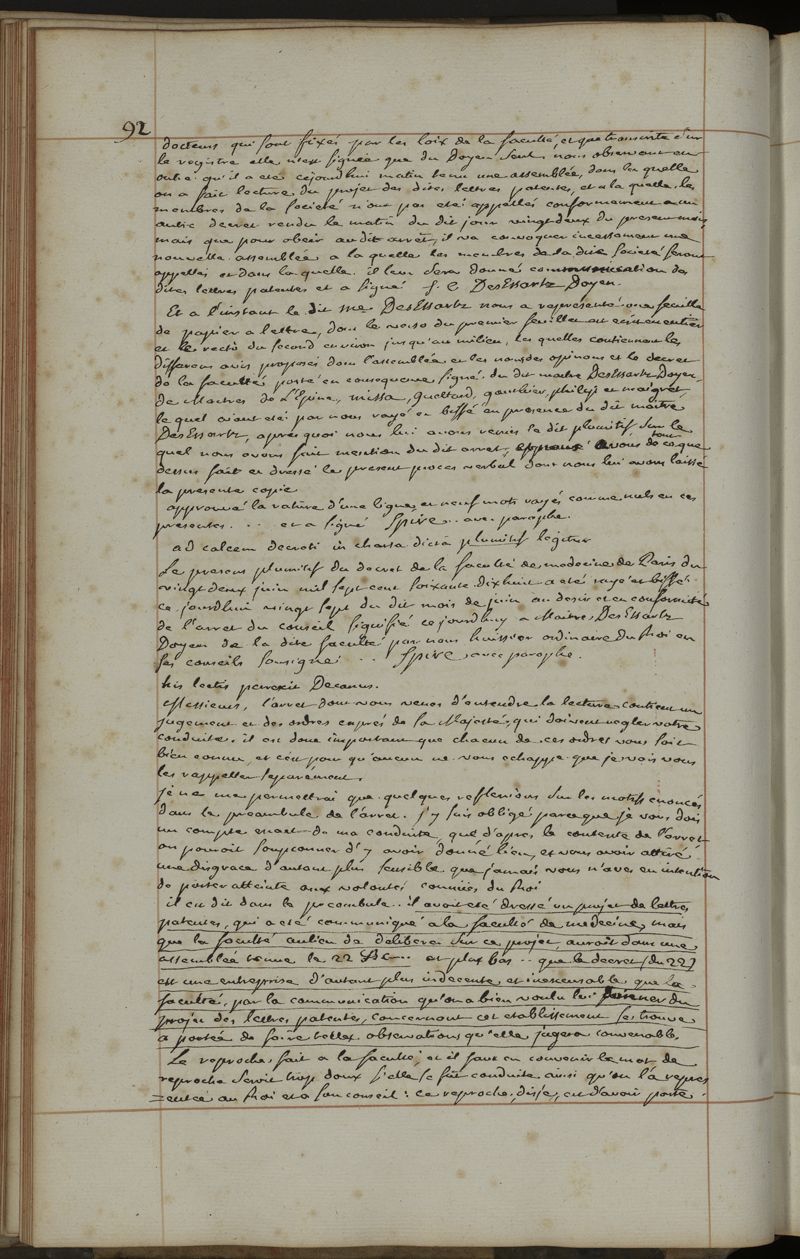 92
docteurs qui sont fixés par les loix de la faculté, et que transcrite sur
le registre elle n'est signée que du Doyen seul, nous observant en
outre qu'il a été cejourdhui matin tenu une assemblée, dans la quelle
on a fait lecture du projet des dites lettres patentes, et a la quelle les
membres de la societé n'ont pas eté appellés conformement a un
autre decret rendu le matin du dit jour vingt deux du present mois,
mais que pour obeir au dit arrêt, il va convoquer incessament une
nouvelle assemblée a la quelle les membres de la dite societé seront
appellés et dans laquelle il leur sera donné communication des
dites lettres patentes et a signé J. C DesEssartz Doyen.
Et a l'instant le dit Me DesEssartz nous a representé une feuille
de papier a lettre, dont le verso du premier feuillet est ecrit en entier
et le recto du second environ jusqu'au milieu, les quelles contiennent les
differens avis proposés dans l'assemblée et les noms des opinans et le decret
de la faculté porté en consequence signé du dit maitre DesEssartz Doyen,
de Maitres de L'Epine, missa, guettard, gauthier, philip et maigret
le quel aiant eté par nous rayé et biffé en presence du dit maitre
DesEssartz, après quoi nous lui avons remis le dit plumitif sur le
quel nous avons fait mention du dit arret, avons de tout ce que
dessus fait et dressé le present proces verbal dont nous lui avons laissé
la presente copie
approuvé la rature d'une ligne, et neuf mots rayés comme nuls en ces
presentes. .. et a signé Spire.. avec paraphe.
ad calcem decreti in charta dicta plumitif legitur
Le present plumitif du decret de la faculté de medecine de Paris du
vingt deux juin mil sept cent soixante dix huit a eté rayé et biffé
ce jourdhui vingt sept du dit mois de juin au desir et en conformité
de l'arret du conseil signifié ce jourdhuy a Maitre DesEssartz
Doyen de la dite faculté par nous huissier ordinaire du Roi en
ses conseils soussigné .. Spire avec paraphe.
his lectis perrexit Decanus.
Messieurs, l'arret dont vous venez d'entendre la lecture contient un
jugement et des ordres exprés de sa Majesté, qui doivent regler votre
conduite. il est donc important que chacun de ces ordres vous soit
bien connu, et c'est pour qu'aucun ne vous echappe que je vais vous
les rappeller separément.
je ne me permettrai que quelques reflexions sur les motifs enoncés
dans le preambule de l'arret. j'y suis obligé parceque je vous dois
un compte exact de ma conduite, que d'apres le contexte de l'arret
on pouroit soupconner d'y avoir donné lieu, et vous avoir attiré
une disgrace d'autant plus sensible que jamais vous n'avez eu intention
de porter atteinte aux volontés connues du Roi
il est dit dans le preambule .. il avoit eté dressé un projet de lettres
patentes, qui a eté communiqué a la faculté de medecine, mais
que la faculté au lieu de deliberer sur ce projet, auroit dans une
assemblée tenue le 22 &c... et plus bas .. que le decret (du 22)
est une entreprise d'autant plus indecente et inexcusable que la
faculté, par la communication qu'on a bien voulu lui donner du
projet des lettres patentes, concernant cet etablissement se trouve
a portée de faire telles observations qu'elle jugera convenable.
Le reproche fait a la faculté, et il faut en convenir le mot de
reproche seroit trop doux si elle se fût conduite ainsi qu'on l'a repre
=sentée au Roi et a son conseil: ce reproche, disje, est d'avoir porté